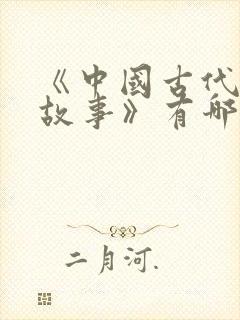 《中国古代
故事》有哪
二月河.